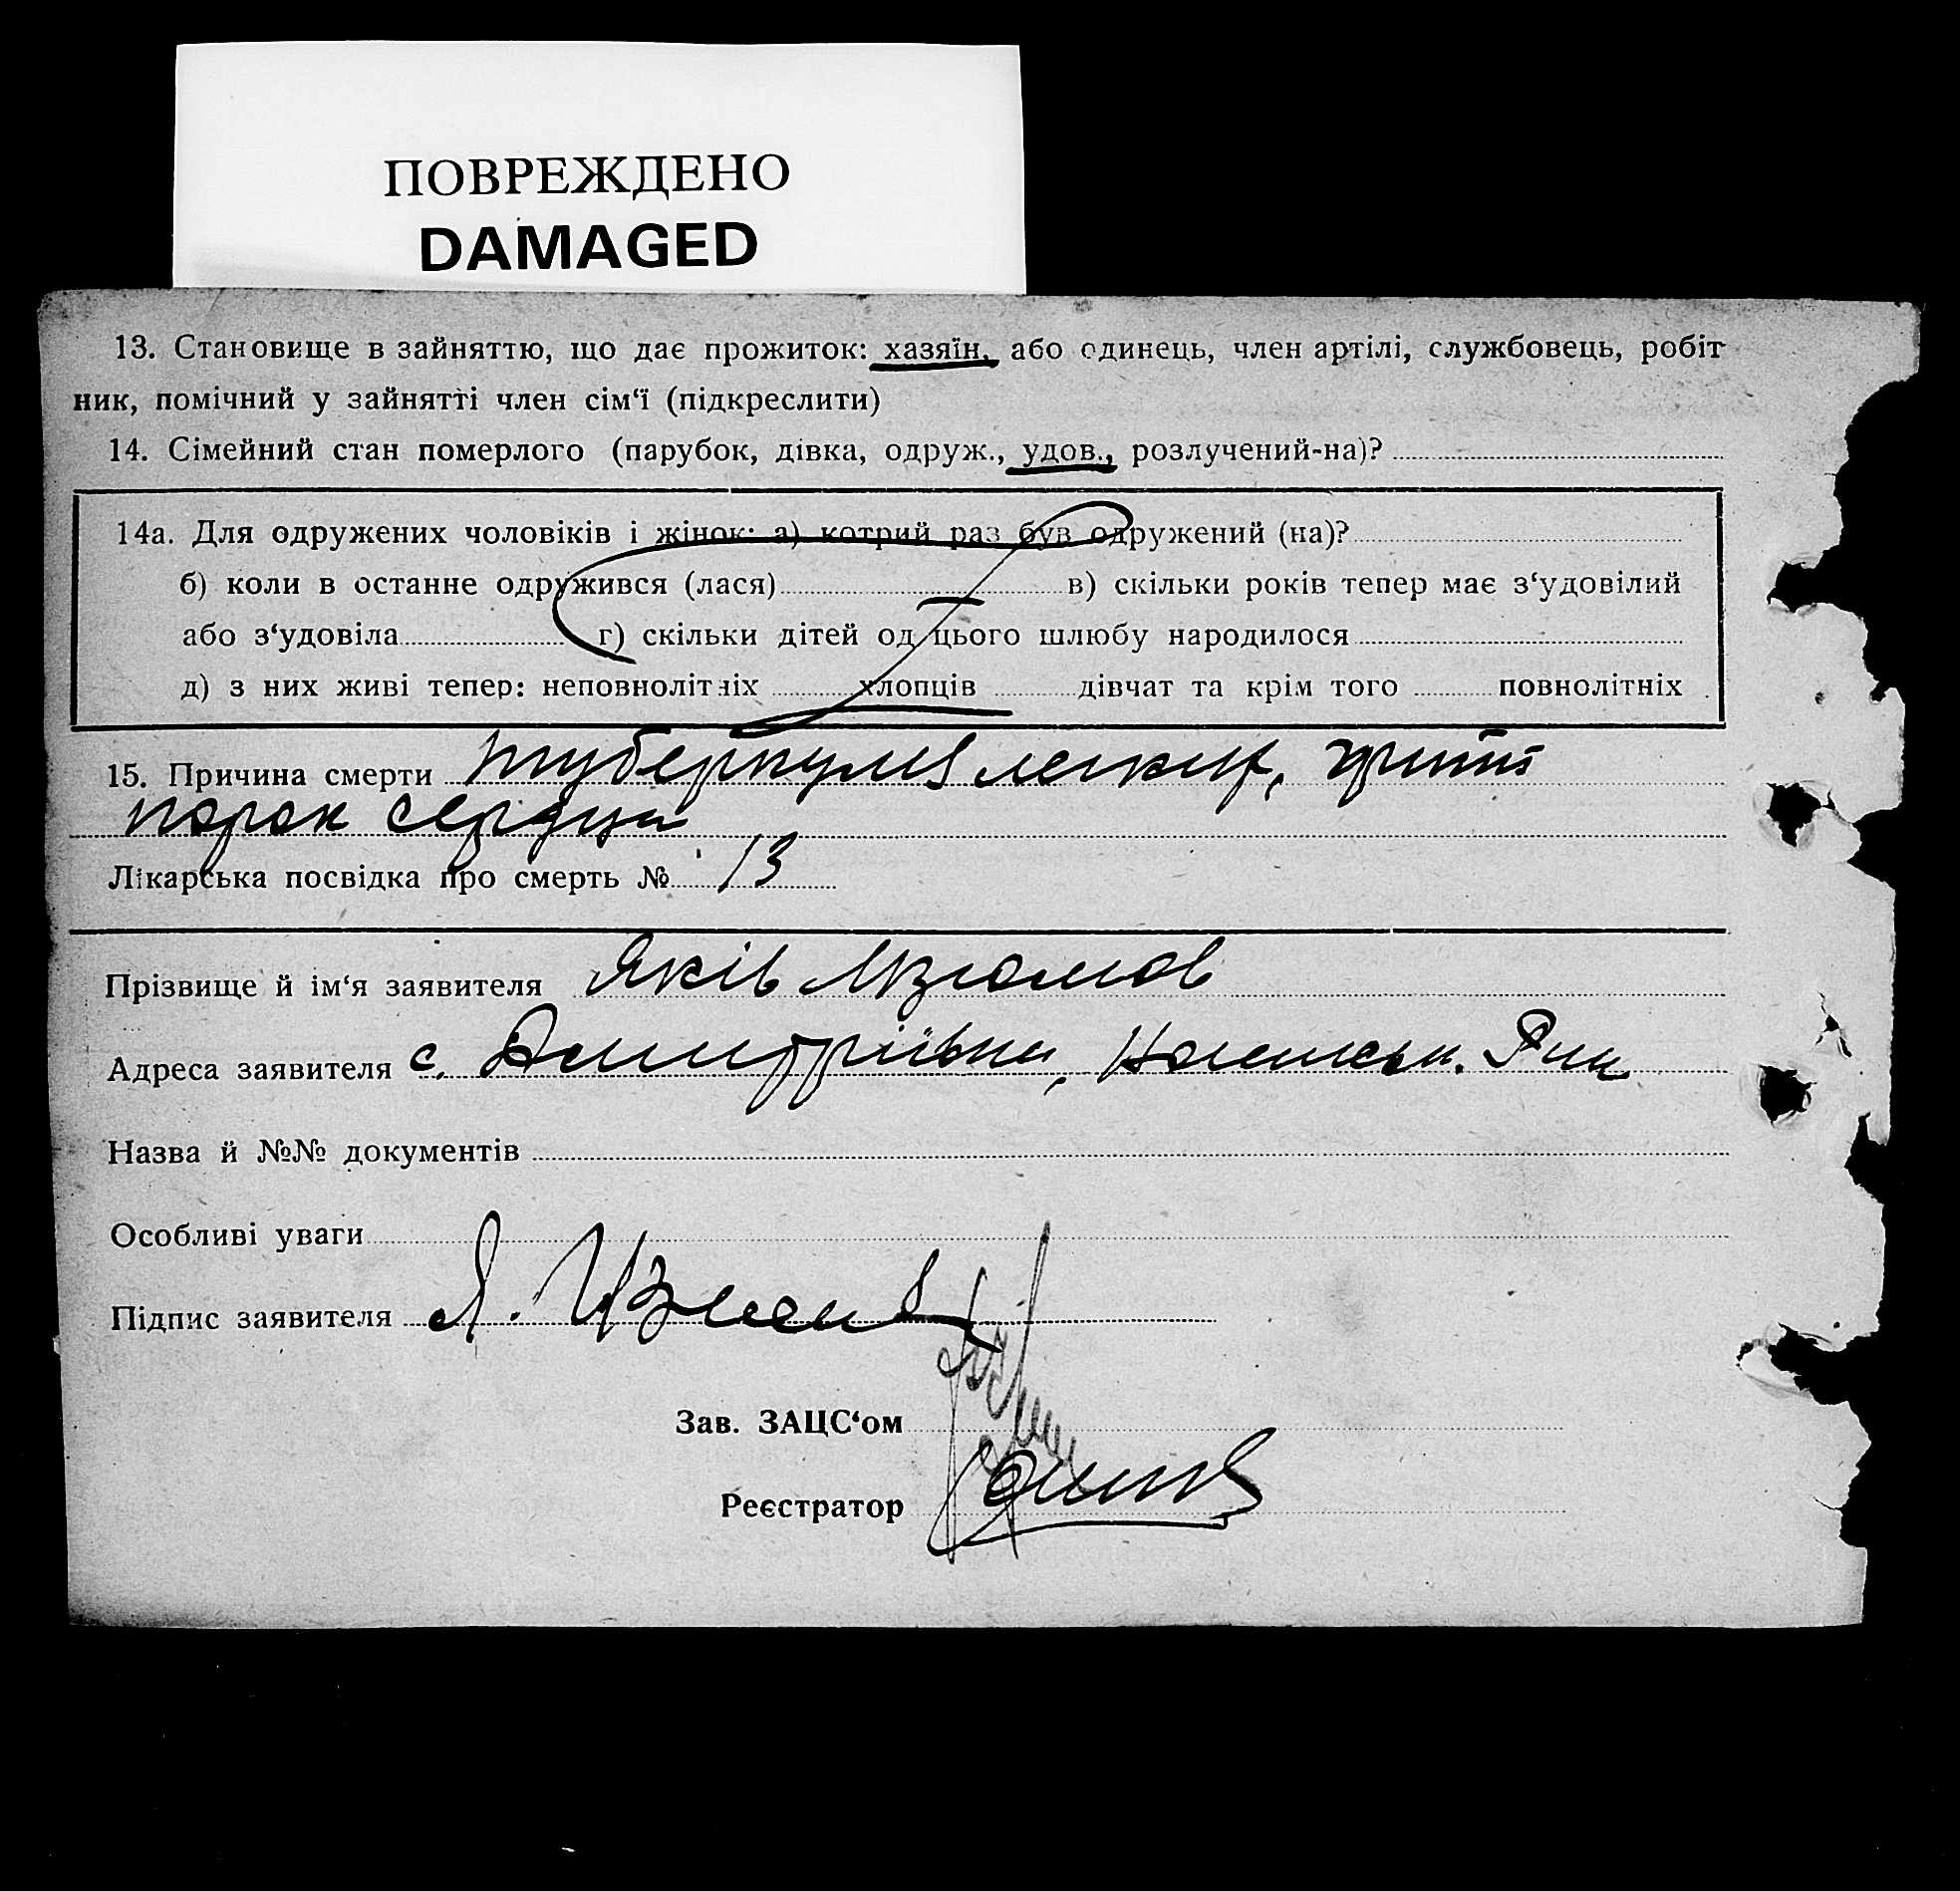 ПОВРЕЖДЕНО
DAMAGED
13. Становище в зайняттю, що дає прожиток: хазяїн, або одинець, член артілі, службовець, робіт
ник, помічний у зайнятті член сім‘ї (підкреслити)
14. Сімейний стан померлого (парубок, дівка, одруж., удов., розлучений-на)?
14а. Для одружених чоловіків і жінок: а) котрий раз був одружений (на)?
б) коли в останне одружився (лася) в) скільки років тепер має з‘удовілий
або з‘удовіла г) скільки дітей од цього шлюбу народилося
д) з них живі тепер: неповнолітніх хлопців дівчат та крім того повнолітніх
15. Причина смерти туберкульоз легких, грипп
порок сердца
Лікарська посвідка про смерть № 13
Прізвище й ім‘я заявителя Яків
Адреса заявителя с. Дмитрівка,
Назва й №№ документів
Особливі уваги
Підпис заявителя Я.
Зав. ЗАЦС‘ом
Реєстратор